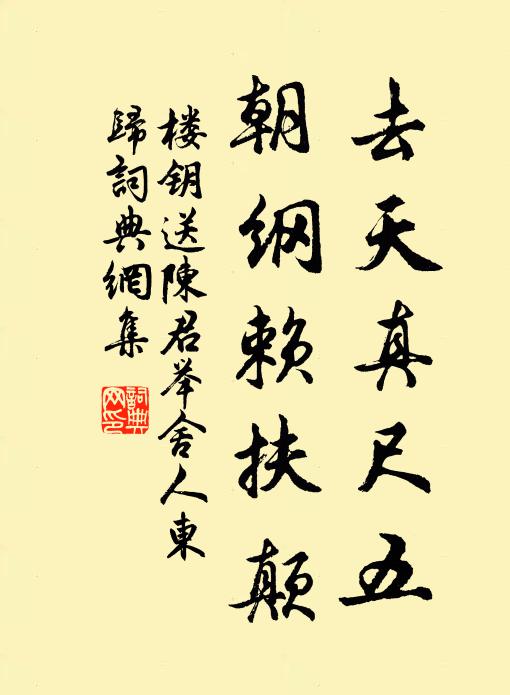 去天真尺五
朝纲赖扶颠
楼钥送陳君举舍人東
歸詞典網集
詞典网印